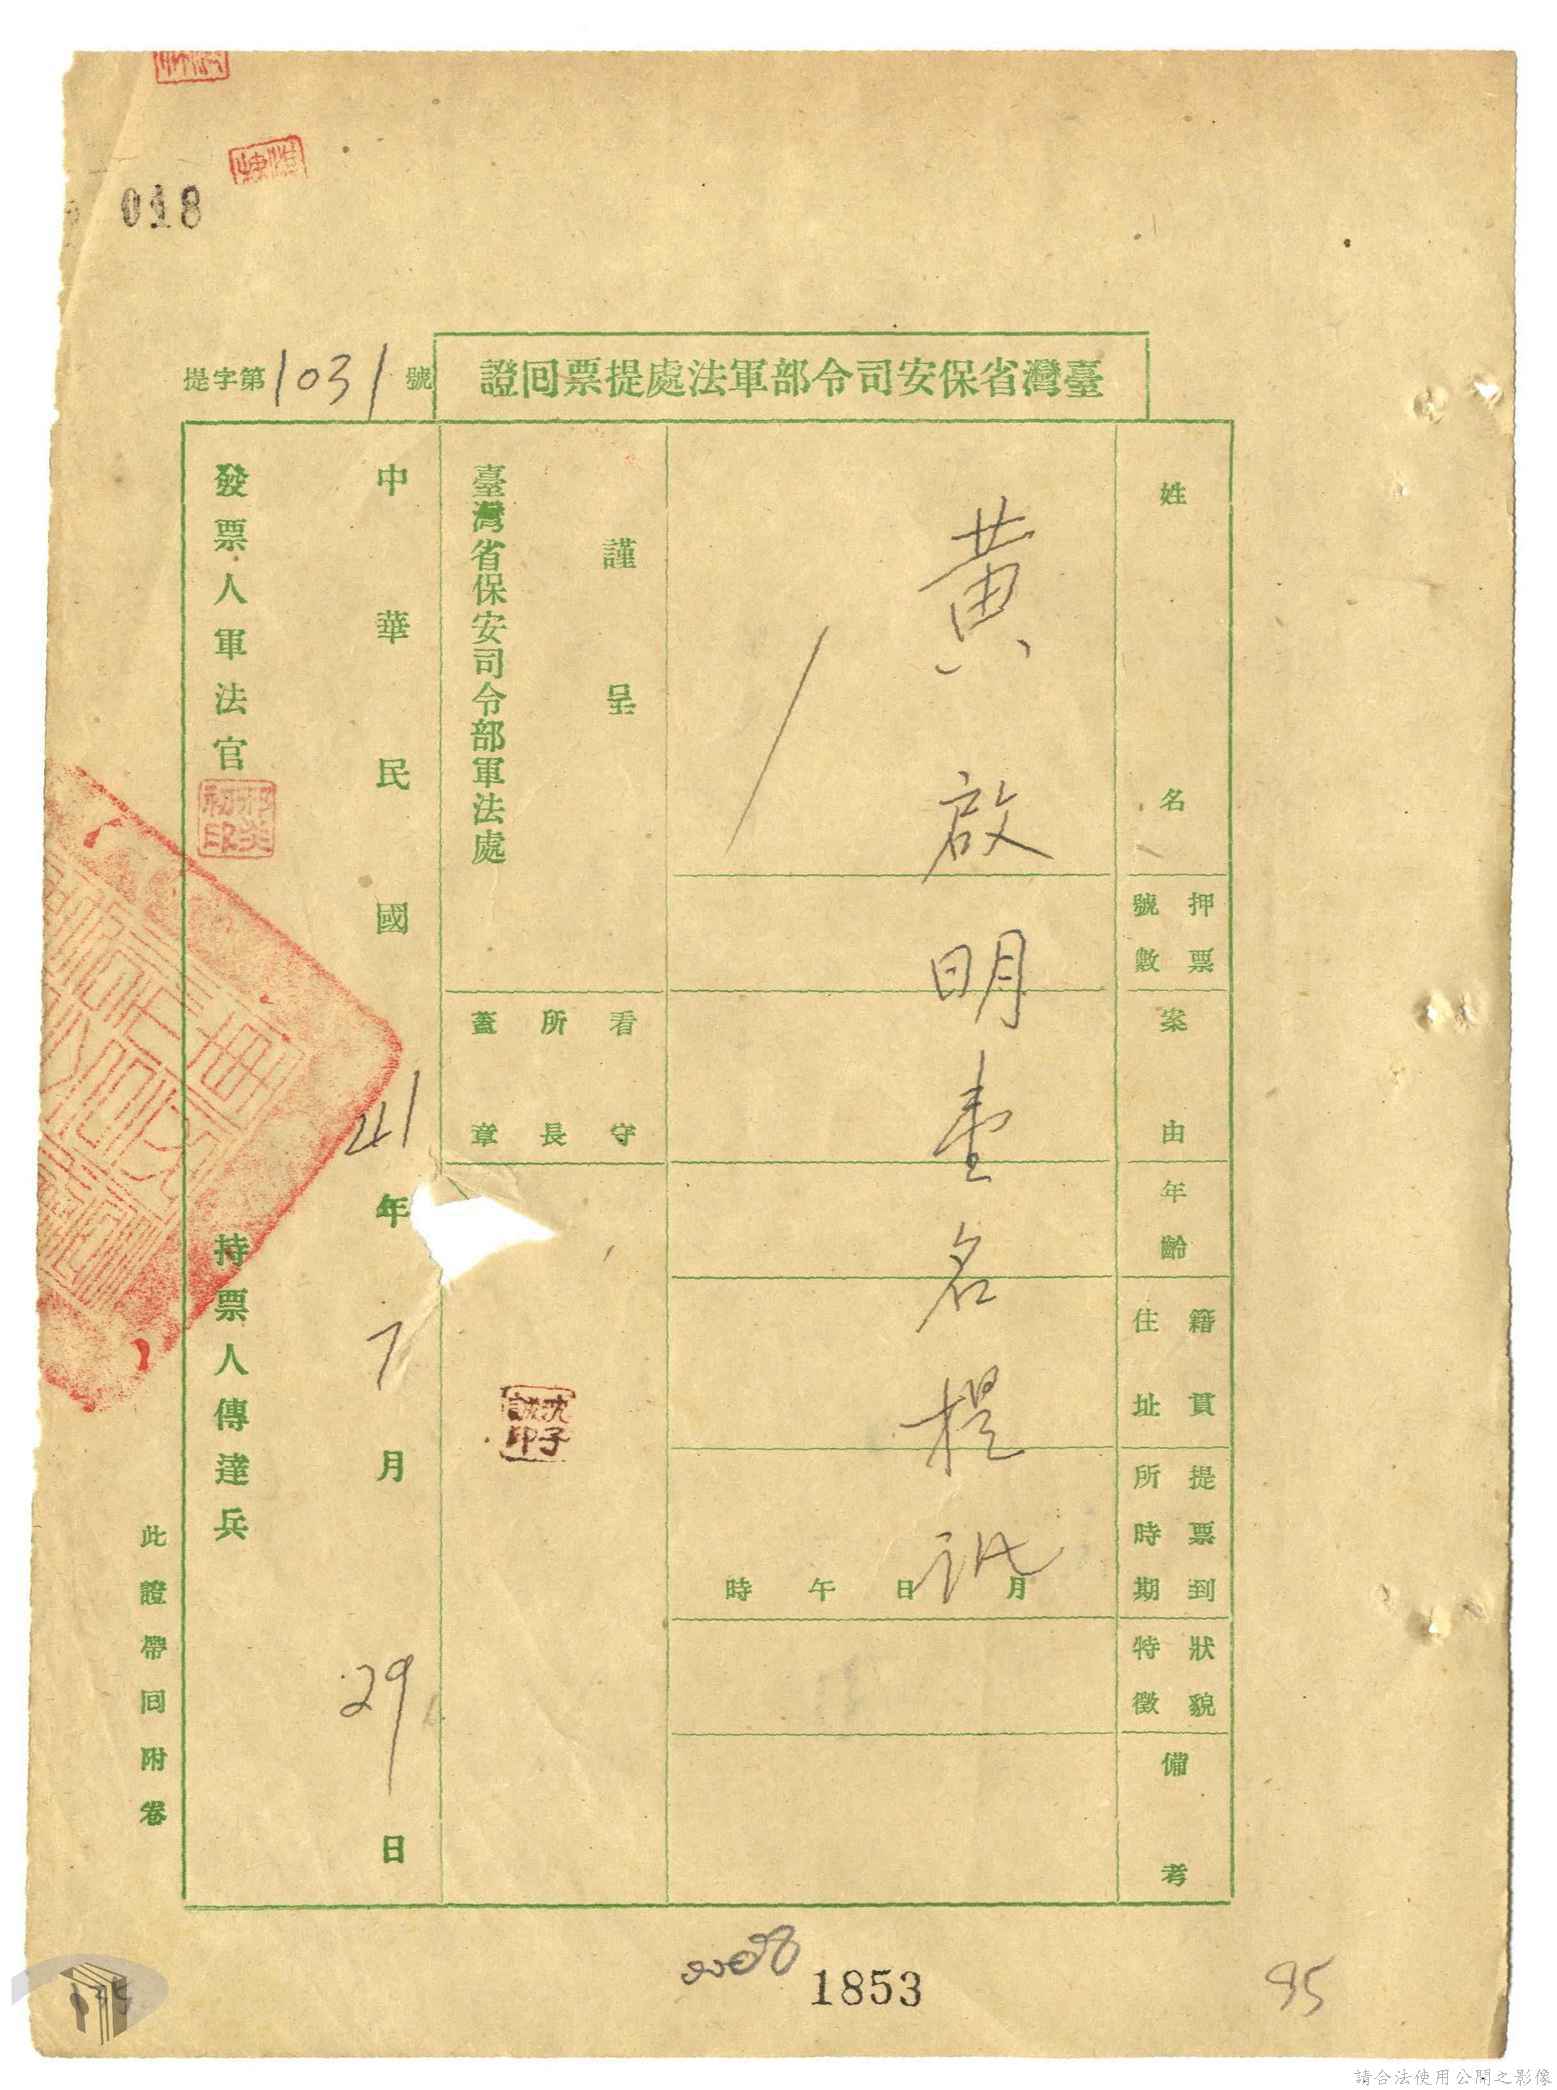 018
臺灣省保安司令部軍法處提票回證
提字第1031號
姓名
押票號數
案由
年齡
籍貫住址
提票到所時期
狀貌特徵
備考
黃啟明壹名提訊
月日午時
謹呈
臺灣省保安司令部軍法處
看守所長蓋章
沈子誠印
中華民國41年7月29日
發票人軍法官
持票人傳達兵
此證帶回附卷
1853
95
請合法使用公開之影像